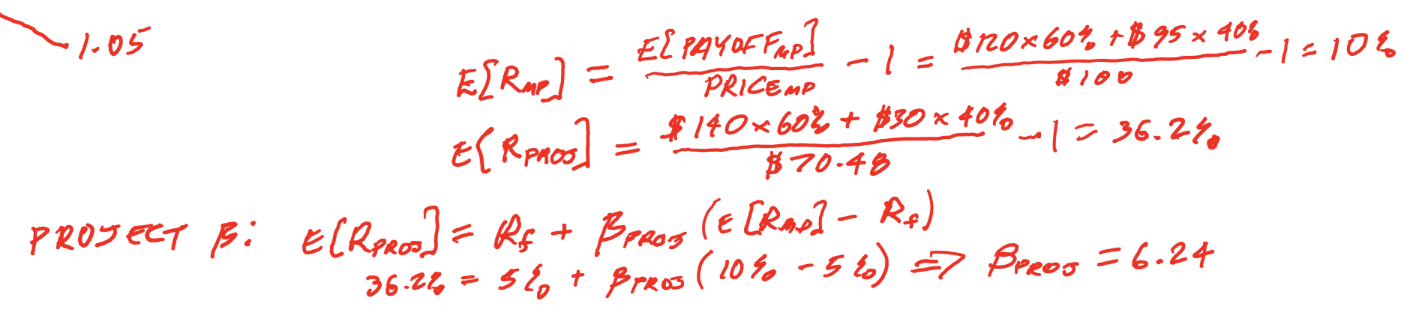 1.05
E[R_MP] = E[PAYOFF_MP] / PRICE_MP - 1 = $120 x 60% + $95 x 40% / $100 - 1 = 10%
E[R_PROJ] = $140 x 60% + $30 x 40% / $70.48 - 1 = 36.2%
PROJECT β: E[R_PROJ] = R_f + β_PROJ (E[R_MP] - R_f)
36.2% = 5% + β_PROJ (10% - 5%) => β_PROJ = 6.24